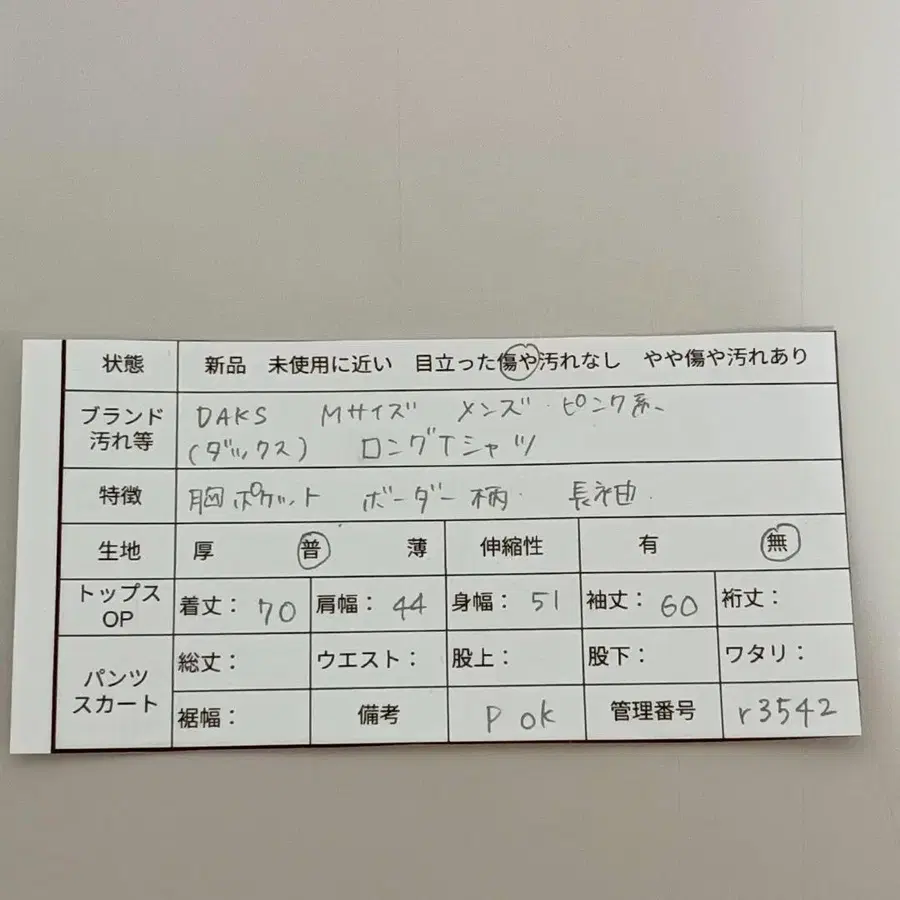 状態 新品 未使用に近い 目立った傷や汚れなし やや傷や汚れあり
ブランド DAKS Mサイズ メンズ ピンク系、
汚れ等 (ダックス) ロングTシャツ
特徴 胸ポケット ボーダー柄 長袖
生地 厚 普 薄 伸縮性 有 無
トップス
OP 着丈: 70 肩幅: 44 身幅: 51 袖丈: 60 裄丈:
パンツ
スカート
総丈: ウエスト: 股上: 股下: ワタリ:
裾幅: 備考 P ok 管理番号 r3542